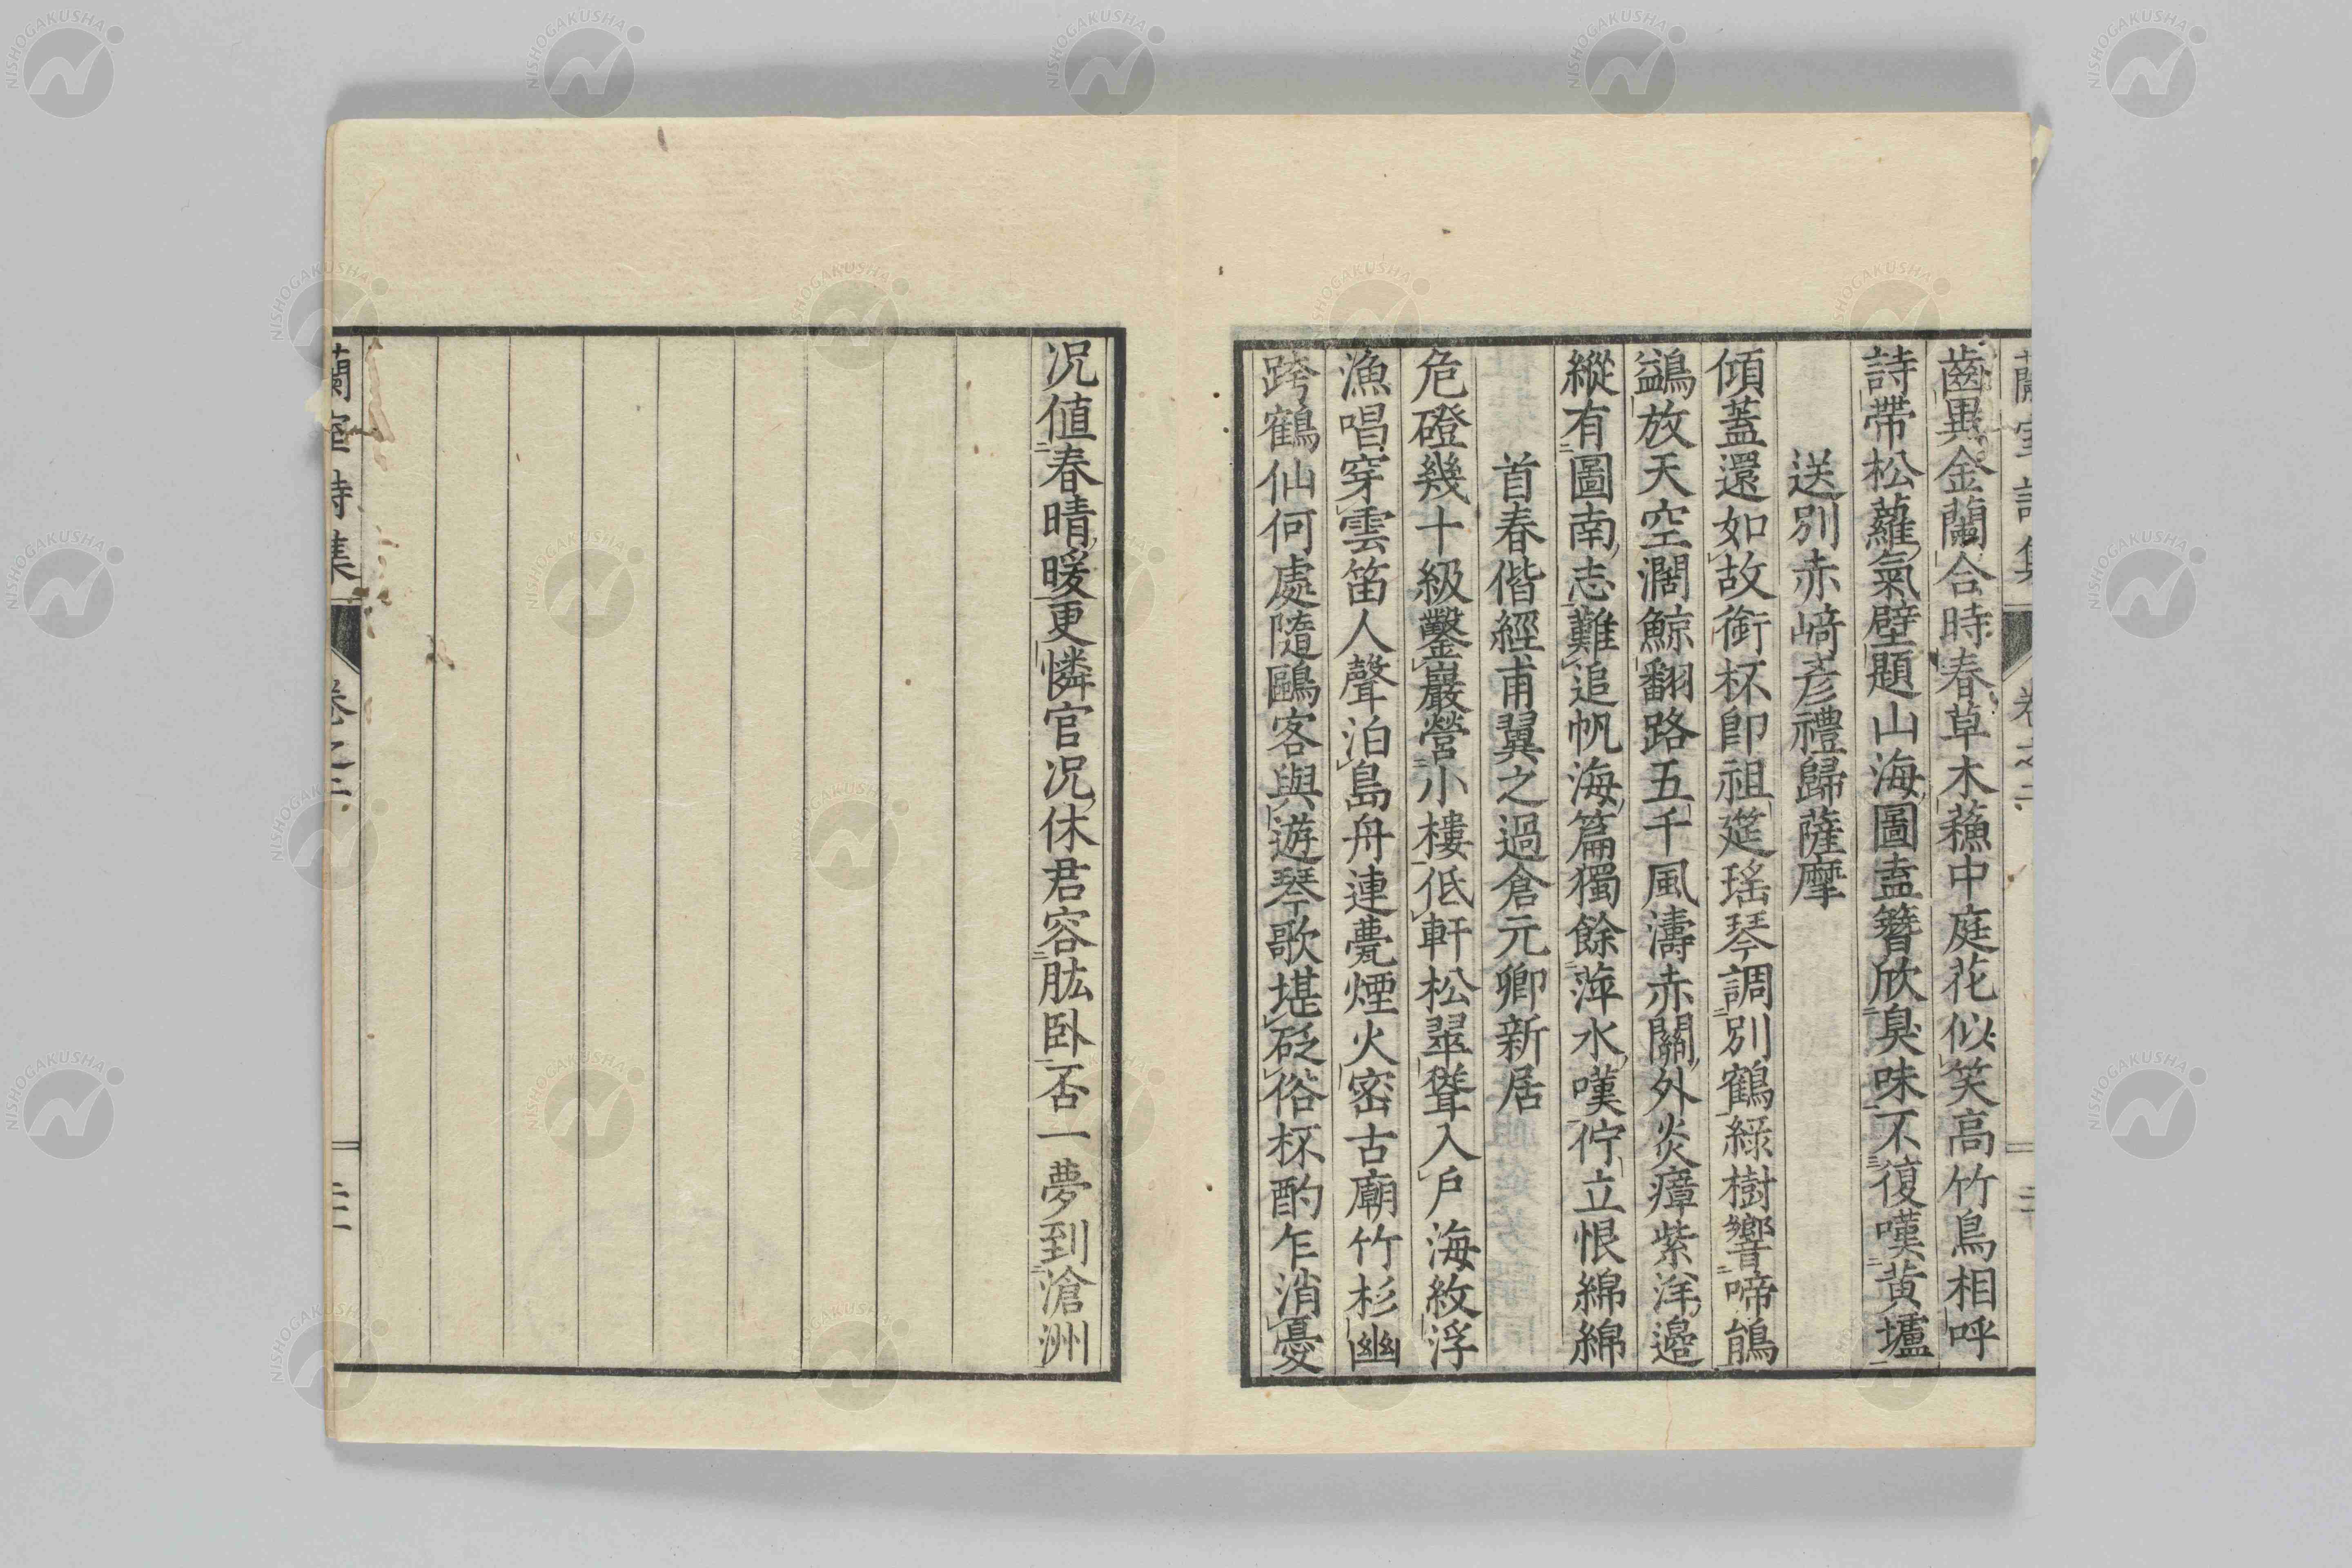 蘭室詩集 卷之二
齒異金蘭合時春草木蘓中庭花似笑高竹鳥相呼
詩帶松蘿氣壁題山海圖盍簪欣臭味不復嘆黄壚
送別赤﨑彦禮歸薩摩
傾蓋還如故銜杯即祖筵瑤琴調別鶴綠樹響啼鵑
鷁放天空濶鯨翻路五千風濤赤關外炎瘴紫洋邊
縱有圖南志難追帆海篇獨餘萍水嘆佇立恨綿綿
首春偕經甫翼之過倉元卿新居
危磴幾十級鑿巖營小樓低軒松翠聳入戶海紋浮
漁唱穿雲笛人聲泊島舟連甍煙火密古廟竹杉幽
跨鶴仙何處隨鷗客與遊琴歌堪砭俗杯酌乍消憂
况値春晴暖更憐官况休君容肱卧否一夢到滄洲
蘭室詩集 卷之二
NISHOGAKUSHA